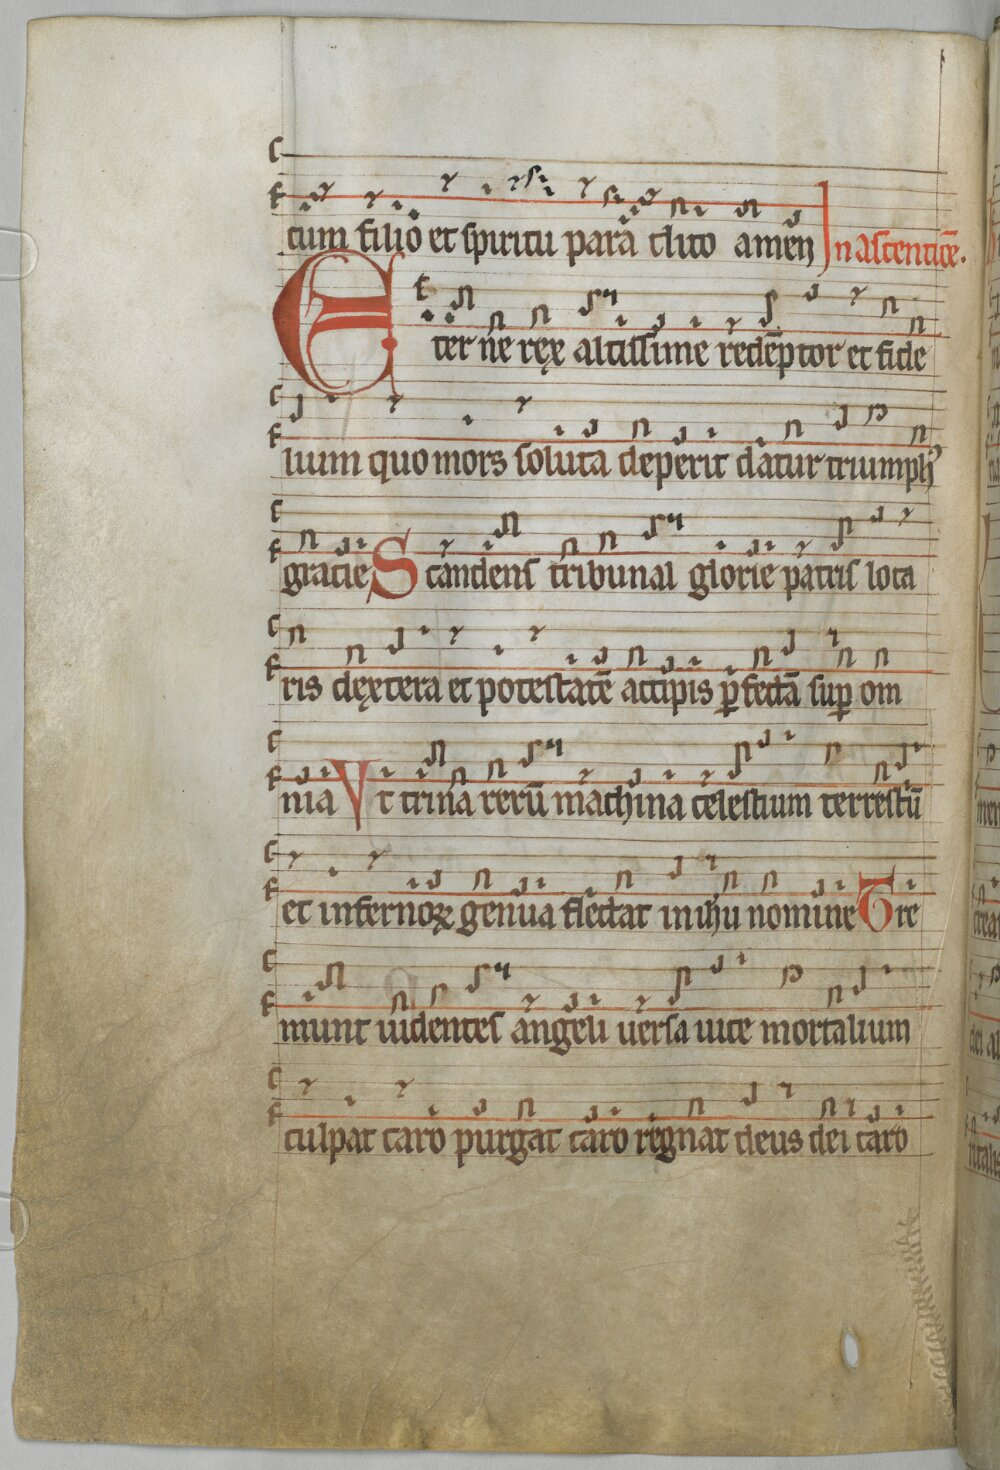 cum filio et spiritu para clito amen In ascencōe.
Eterne rex altissime redēptor et fide
lium quo mors soluta deperit datur triumph9
gracie Scandens tribunal glorie patris loca
ris dextera et potestatē accipis ꝑfectā suꝑ om
nia Vt trina rerū machina celestium terrestiū
et infernoꝝ genua flectat in ihu nomine Tre
munt uidentes angeli uersa uice mortalium
culpat caro purgat caro regnat deus dei caro